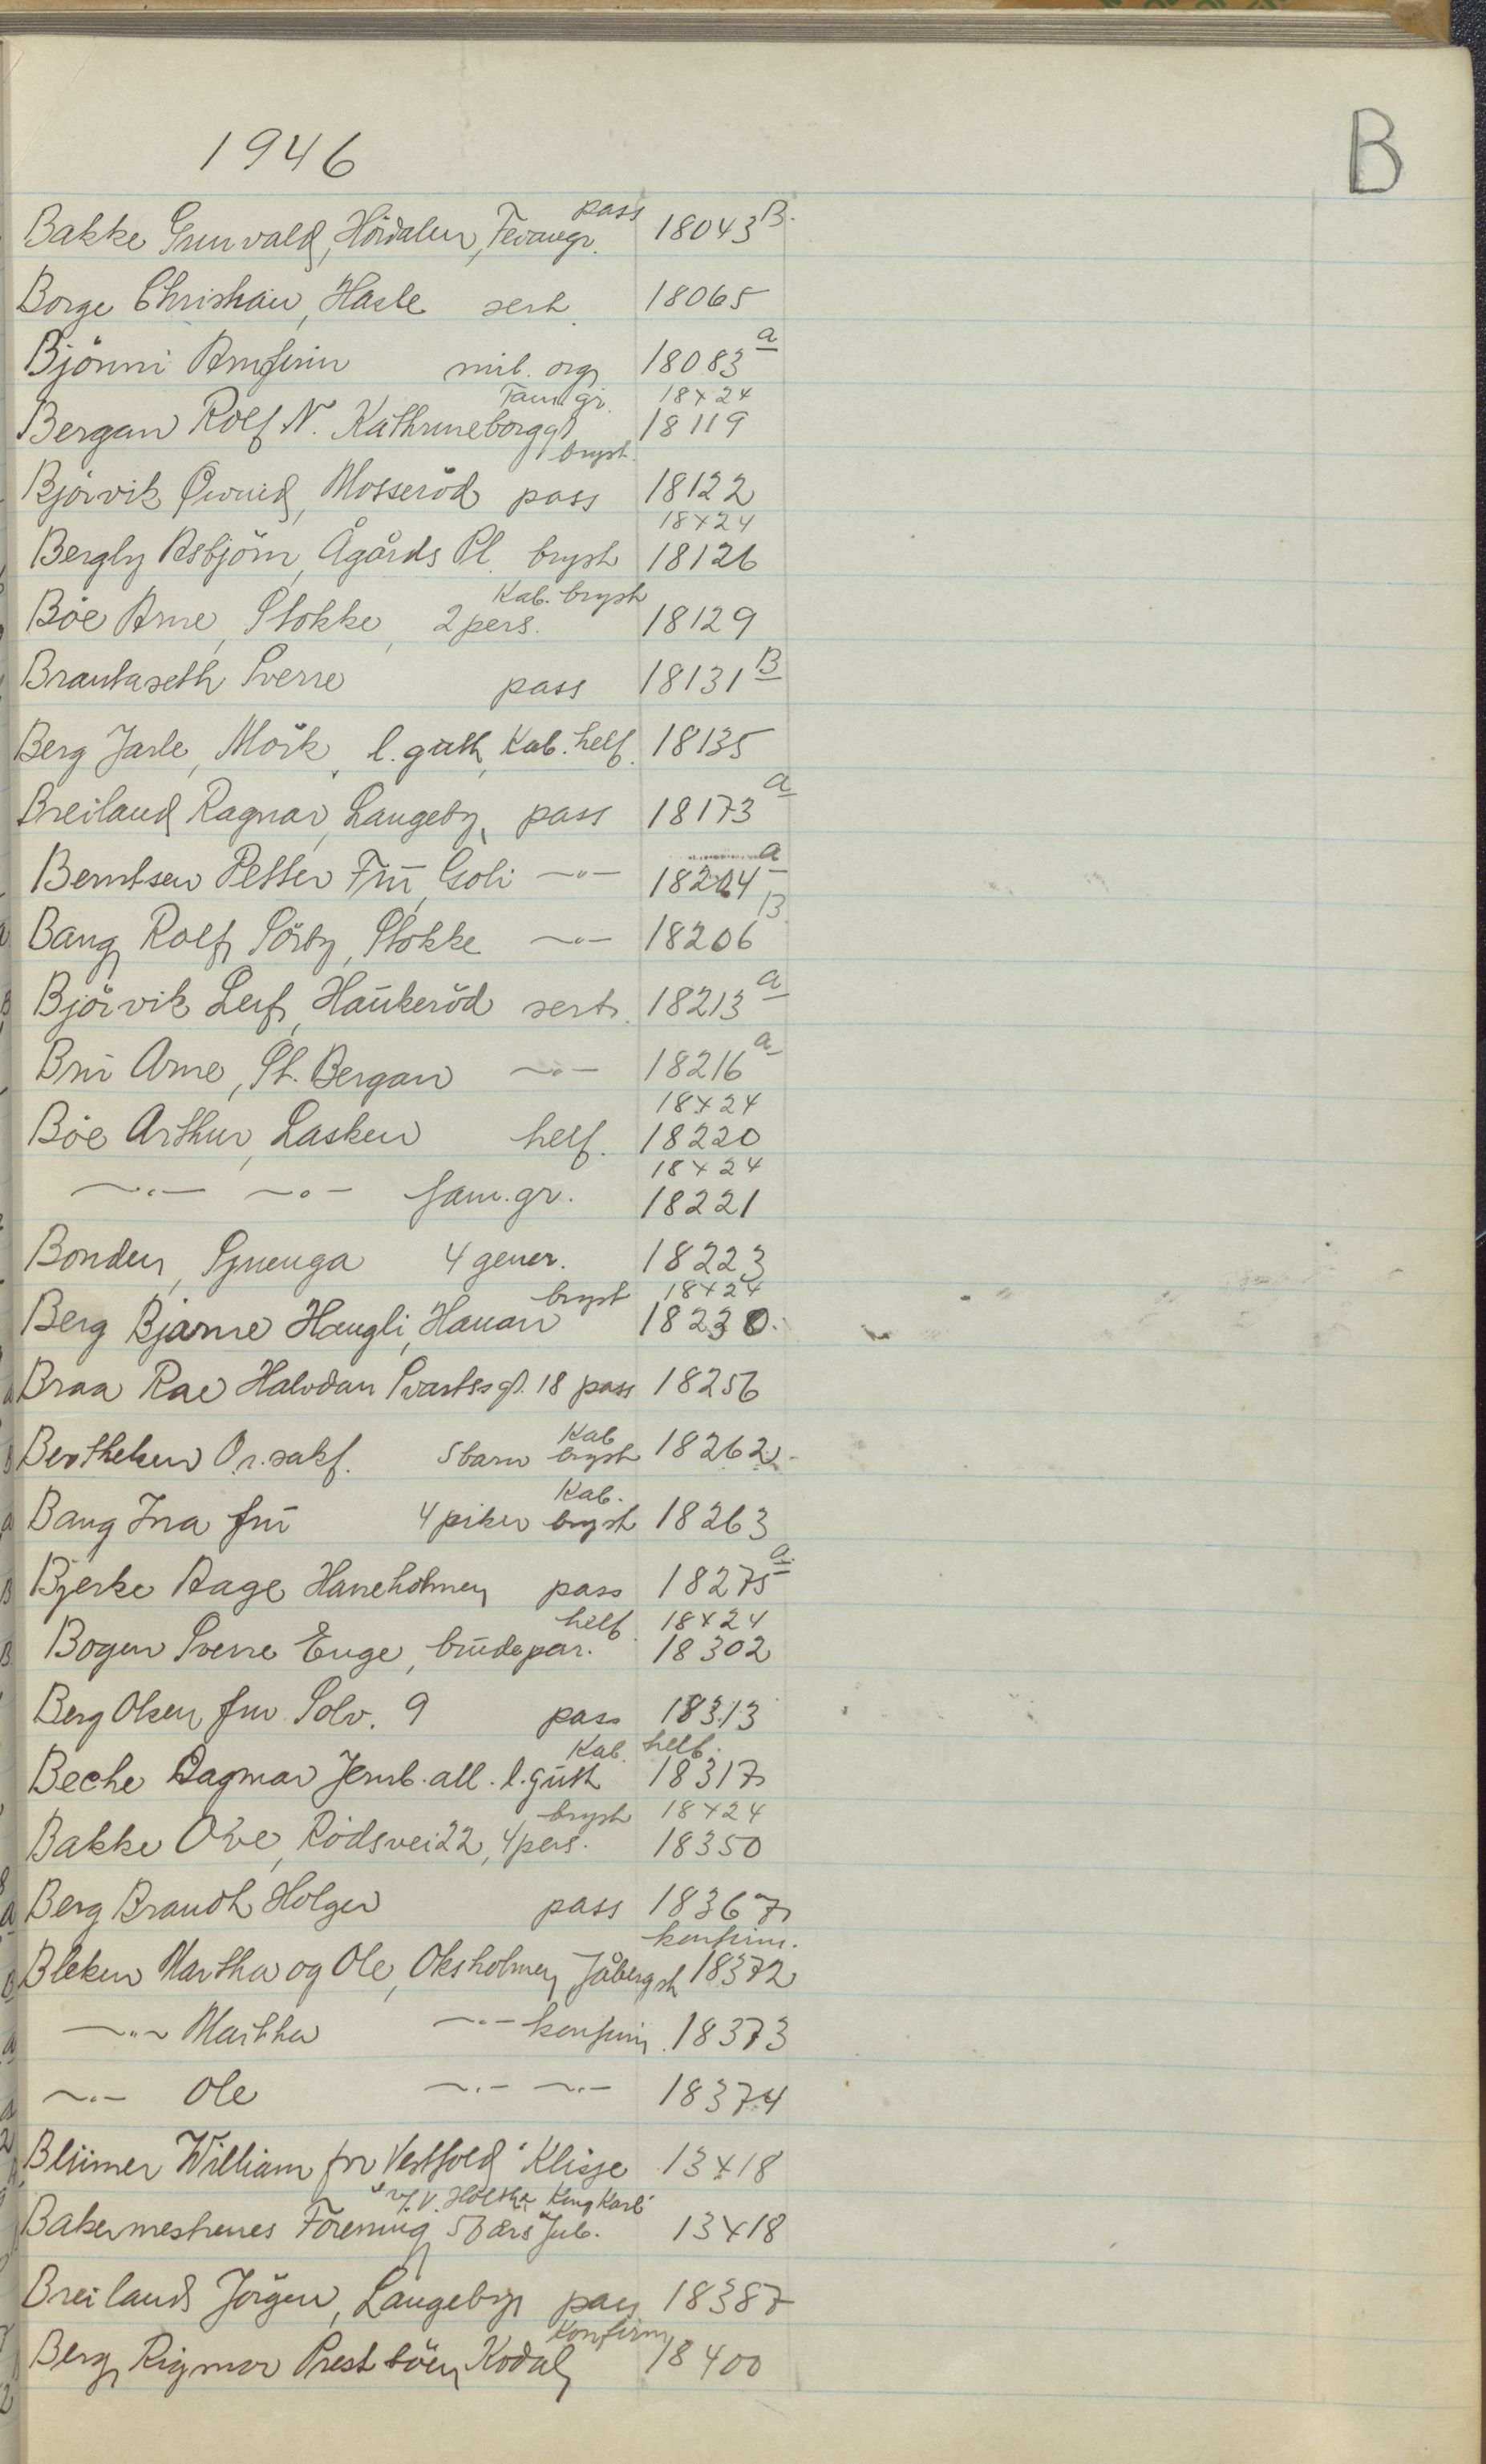 B
1946
Bakke Grunvald, Hördalen, Fevangr. pass 18043 B.
Borge Christian, Hasle sert. 18065
Bjönni Arnfinn mil. org 18083 a
Bergan Rolf N. Kathrineborggt Fam. gr. 18x24 18119
bryst.
Bjørvik Øivind, Mosseröd pass 18122
18x24
Bergby Asbjörn, Ågårds Pl. bryst 18126
Böe Arne, Stokke, 2 pers. Kab. bryst 18129
Brautaseth Sverre pass 18131 B
Berg Jarle, Mörk, l. gutt, Kab. helf. 18135
Breiland Ragnar, Langeby, pass 18173 a
Berntsen Petter Frü, Goli -"- 18204 a
Bang Rolf, Sörby, Stokke -"- 18206 B.
Bjørvik Leif, Haukeröd sert. 18213 a
Brü Arne, St. Bergan -"- 18216 a
18x24
Böe Arthur, Lasken helf. 18220
18x24
-"- -"- fam. gr. 18221
Bonden, 4 gener. 18223
bryst 18x24
Berg Bjarne Haugli, Hauan 18230.
Braa Rae Halvdan Svartsgt. 18 pass 18256
Berthelsen O.r. sakf. 5 barn Kab bryst 18262
Bang Ina frü 4 piker Kab. bryst 18263
Bjerke Aage Haneholmen pass 18275 a
helf. 18x24
Bogen Sverre Enge, brüdepar. 18302
Berg Olsen fru Solv. 9 pass 18313
Kab. helf.
Beche Dagmar Jernb. all. l. gütt 18317
bryst 18x24
Bakke Ove, Rödsvei 22, 4 pers. 18350
Berg Brandt Holger pass 18367
konfirm.
Bleken Martha og Ole, Oksholmen Jåbergst 18372
-"- Martha -"- konfirm. 18373
-"- Ole -"- -"- 18374
Blümer William for "Vestfold" Klisje 13x18
Bakermestrenes Forening 50 års Jub. 13x18
Breiland Jörgen, Langeby pass 18387
Konfirm
Berg Rigmor Prestböen Kodal 18400